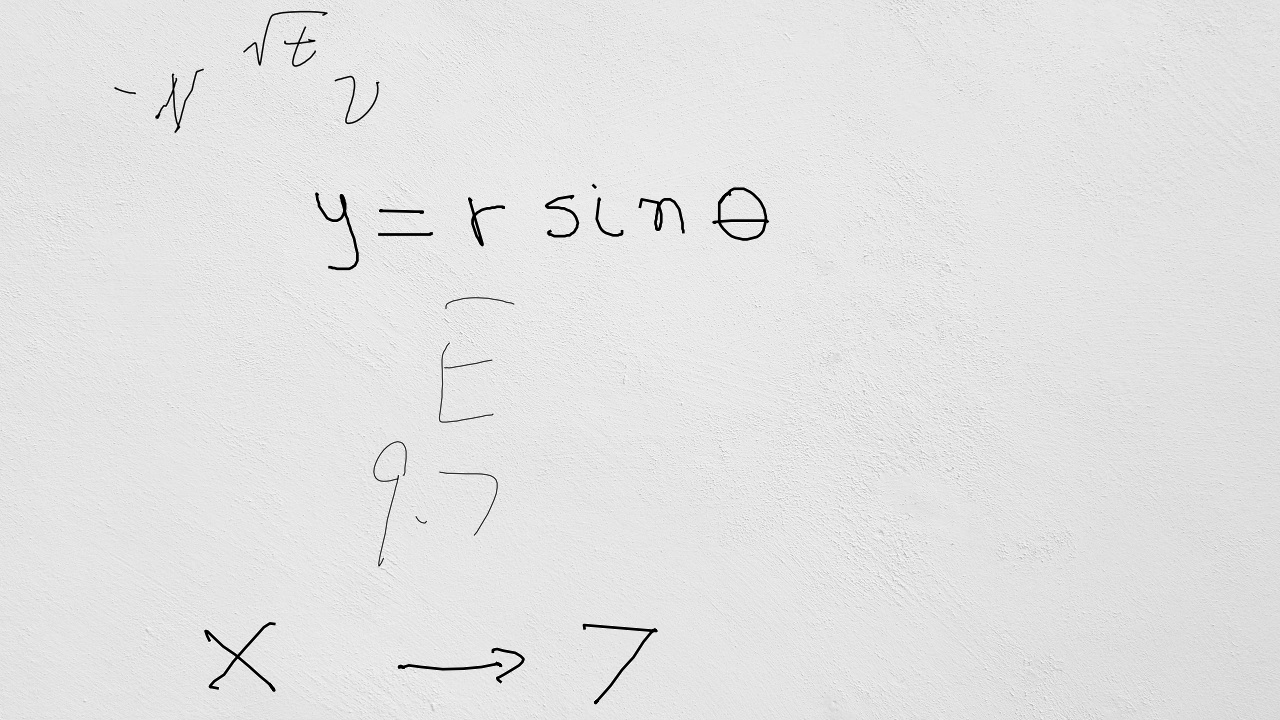 -N^{\sqrt{t}}v
y = r sin θ
\overline{E}
9.7
X → 7